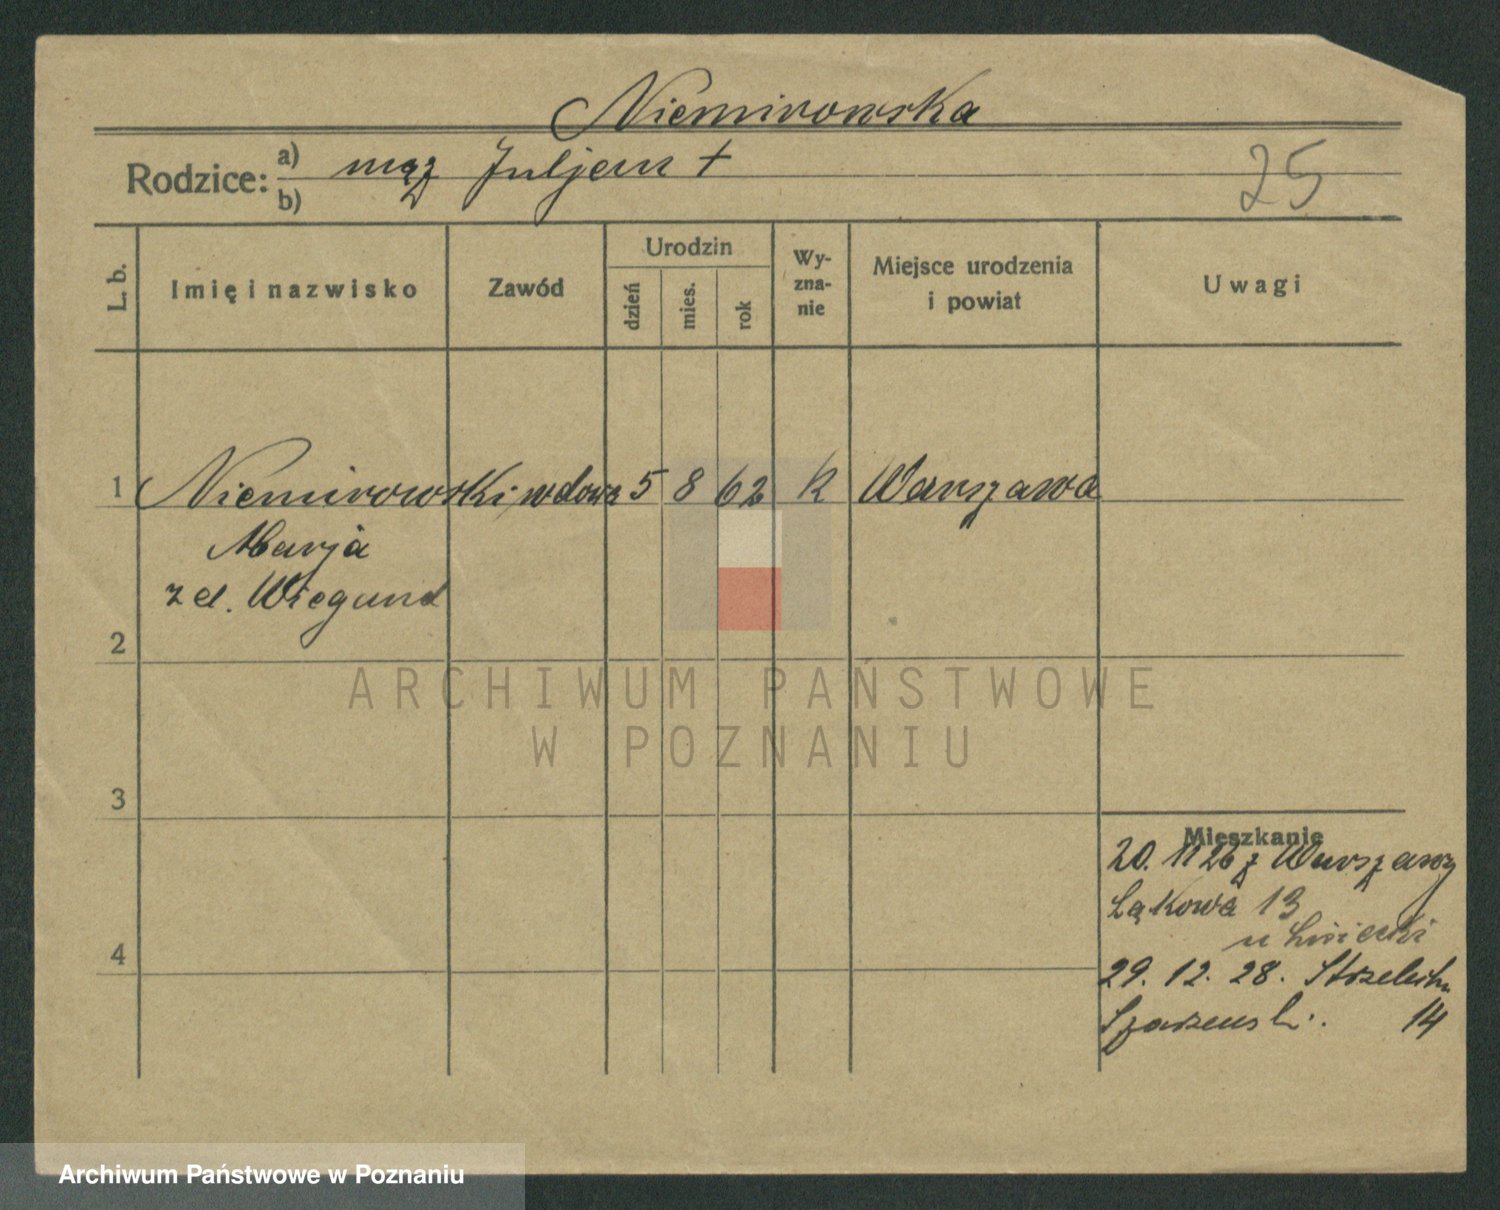 Niemirowska
Rodzice: a) mąż Juljan +
b)
25
L. b.
Imię i nazwisko
Zawód
Urodzin
dzień
mies.
rok
Wy-
zna-
nie
Miejsce urodzenia
i powiat
Uwagi
1 Niemirowski wdowa 5 8 62 k Warszawa
Marja
z d. Wiegand
2
ARCHIWUM PAŃSTWOWE
W POZNANIU
3
Mieszkanie
20. 11 26 z Warszawy
Łąkowa 13
u
4
29. 12. 28.
14
Archiwum Państwowe w Poznaniu